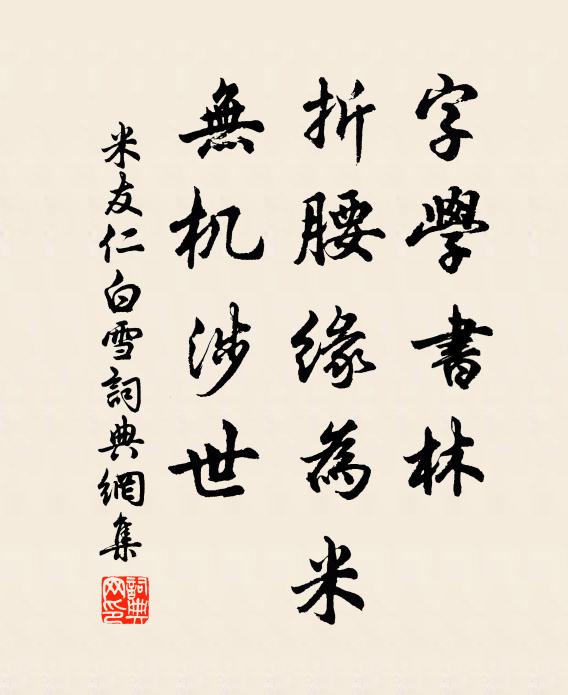 字學書林
折腰緣為米
無机涉世
米友仁白雪詞典網集
詞典網印